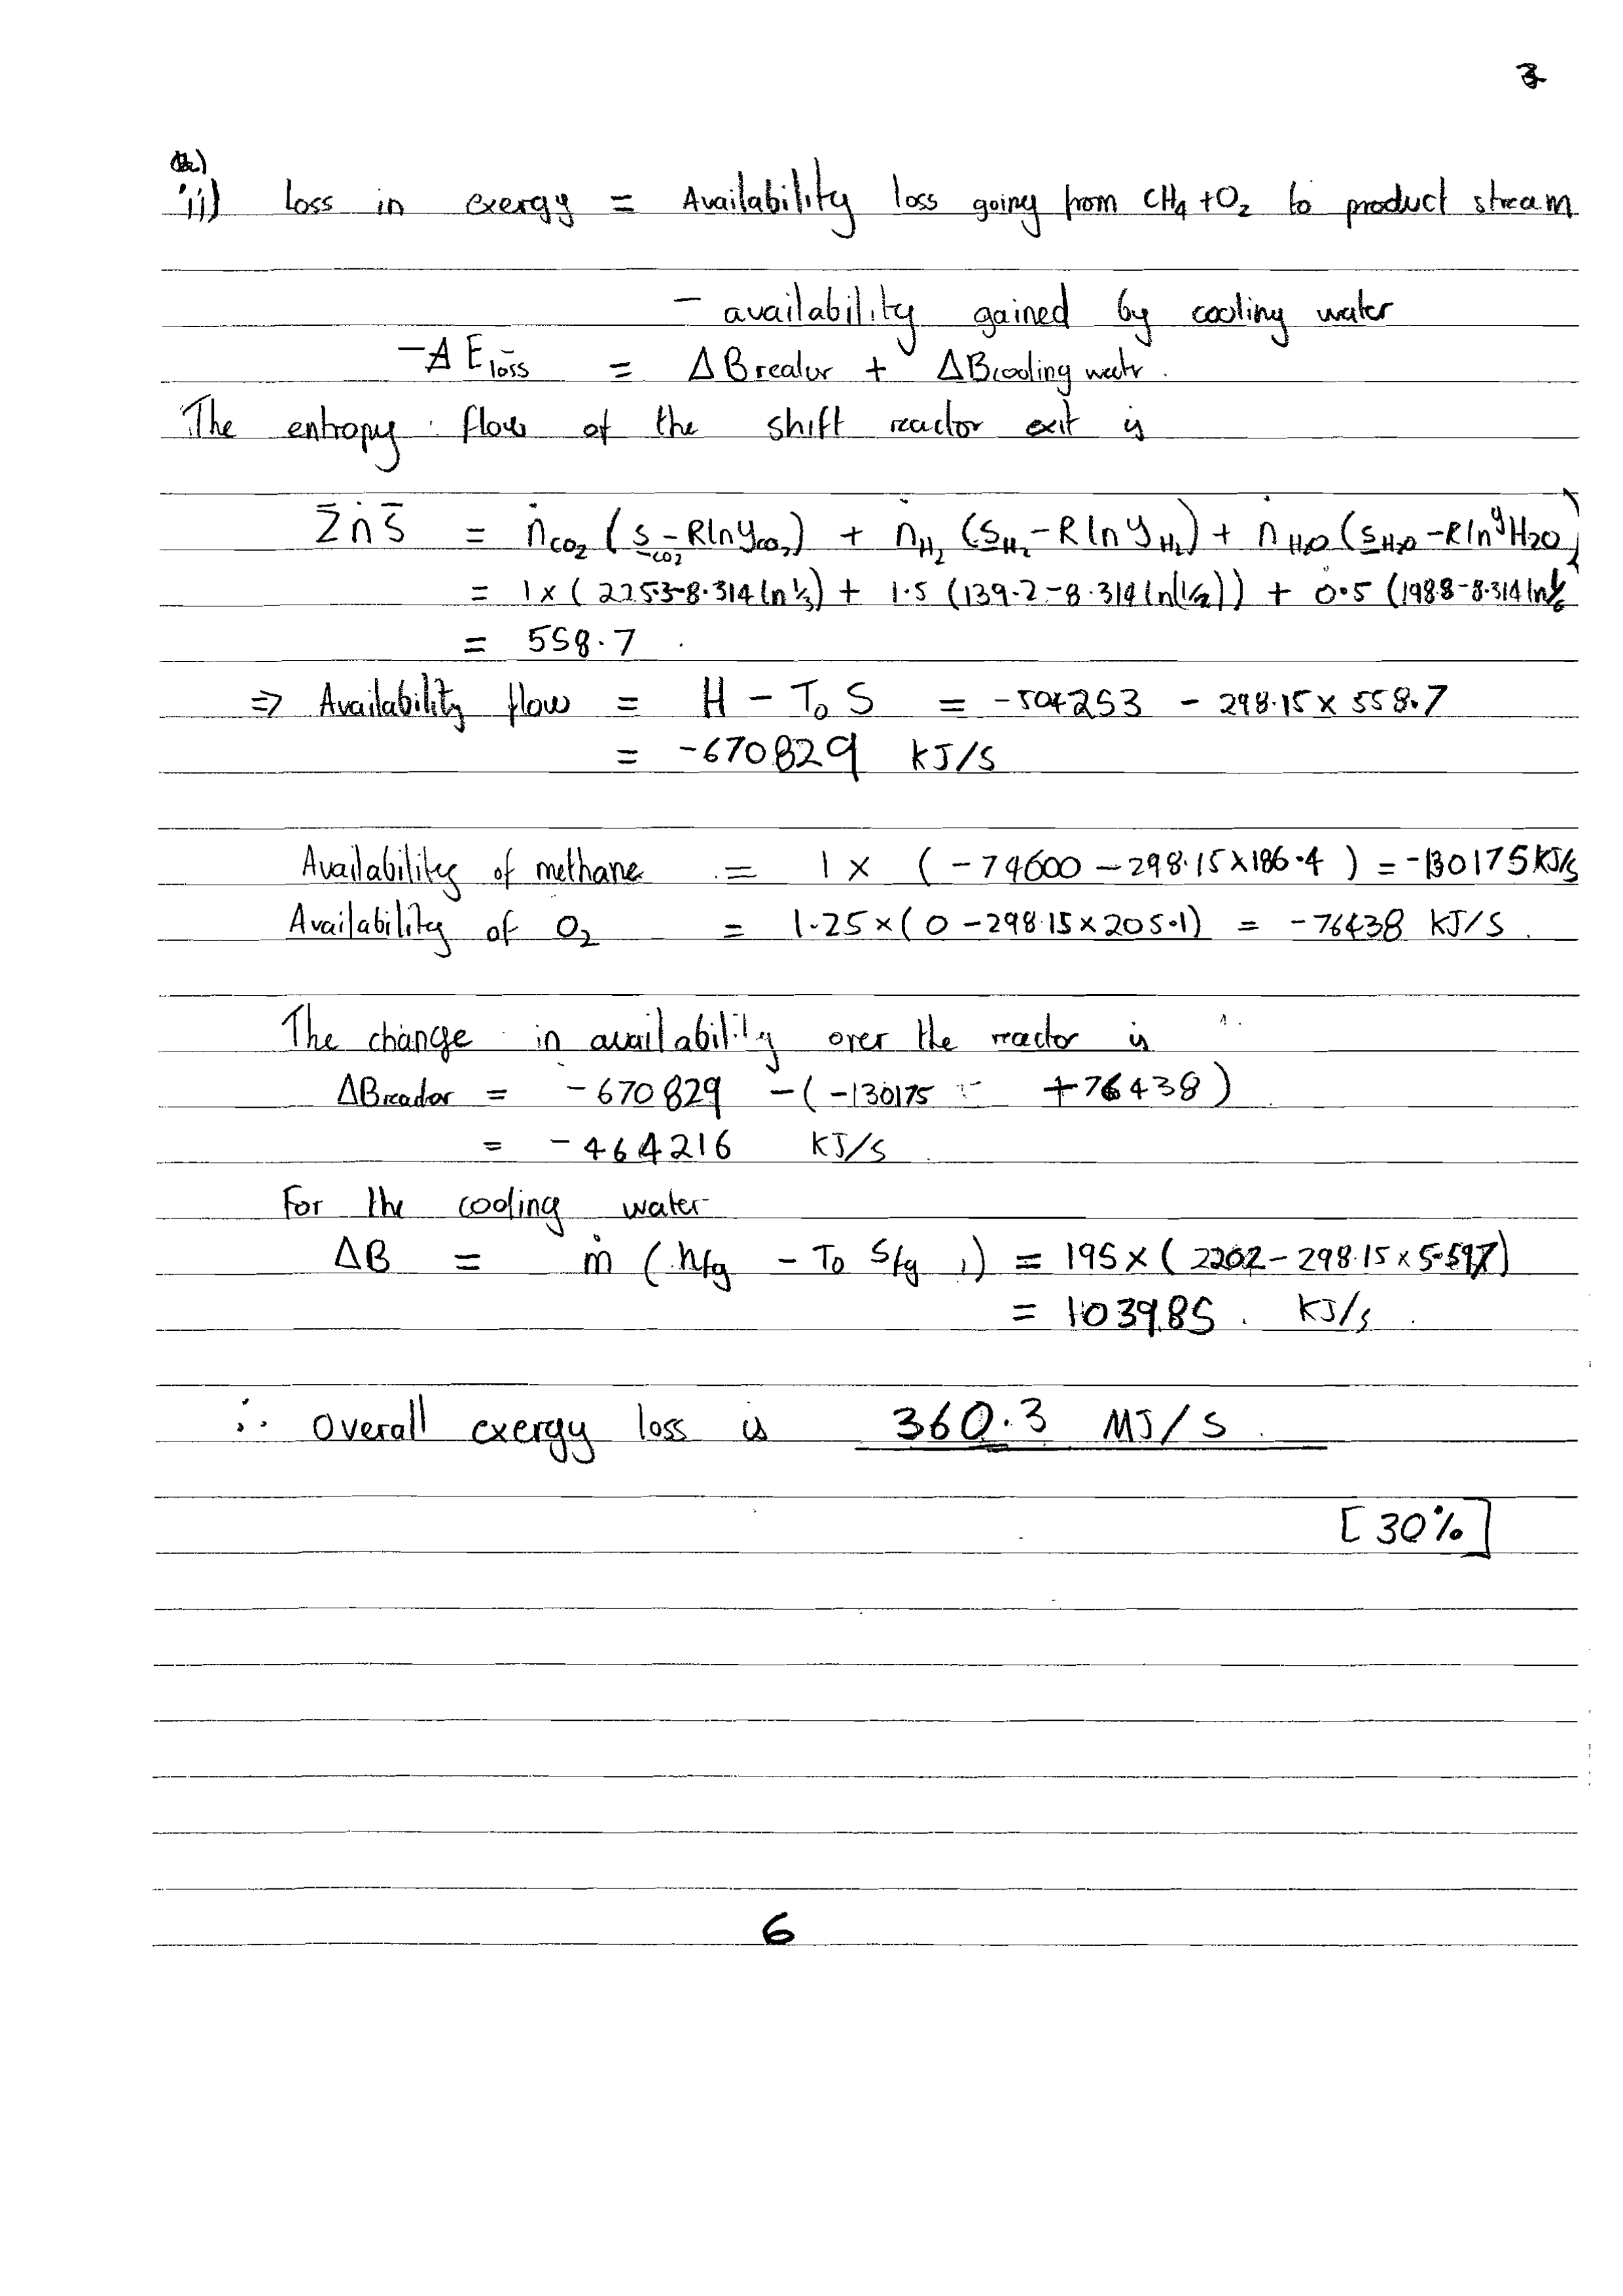 3
a)
ii) Loss in exergy = Availability loss going from CH4 + O2 to product stream
- availability gained by cooling water
-ΔEloss = ΔBreactor + ΔBcooling water.
The entropy flow of the shift reactor exit is
Σ ṅ s̄ = ṅCO2 (sCO2 - R ln yCO2) + ṅH2 (sH2 - R ln yH2) + ṅH2O (sH2O - R ln yH2O)
= 1 × (225.3 - 8.314 ln 1/3) + 1.5 (139.2 - 8.314 ln(1/2)) + 0.5 (198.8 - 8.314 ln 1/6
= 558.7
⇒ Availability flow = H - T0 S = -504253 - 298.15 × 558.7
= -670829 KJ/s
Availability of methane = 1 × (-74600 - 298.15 × 186.4) = -130175 KJ/s
Availability of O2 = 1.25 × (0 - 298.15 × 205.1) = -76438 KJ/s.
The change in availability over the reactor is
ΔBreactor = -670829 - (-130175 - +76438)
= -464216 KJ/s
For the cooling water
ΔB = ṁ (hfg - T0 sfg) = 195 × (2202 - 298.15 × 5.597)
= 103985. KJ/s
∴ Overall exergy loss is 360.3 MJ/s
[30%]
6